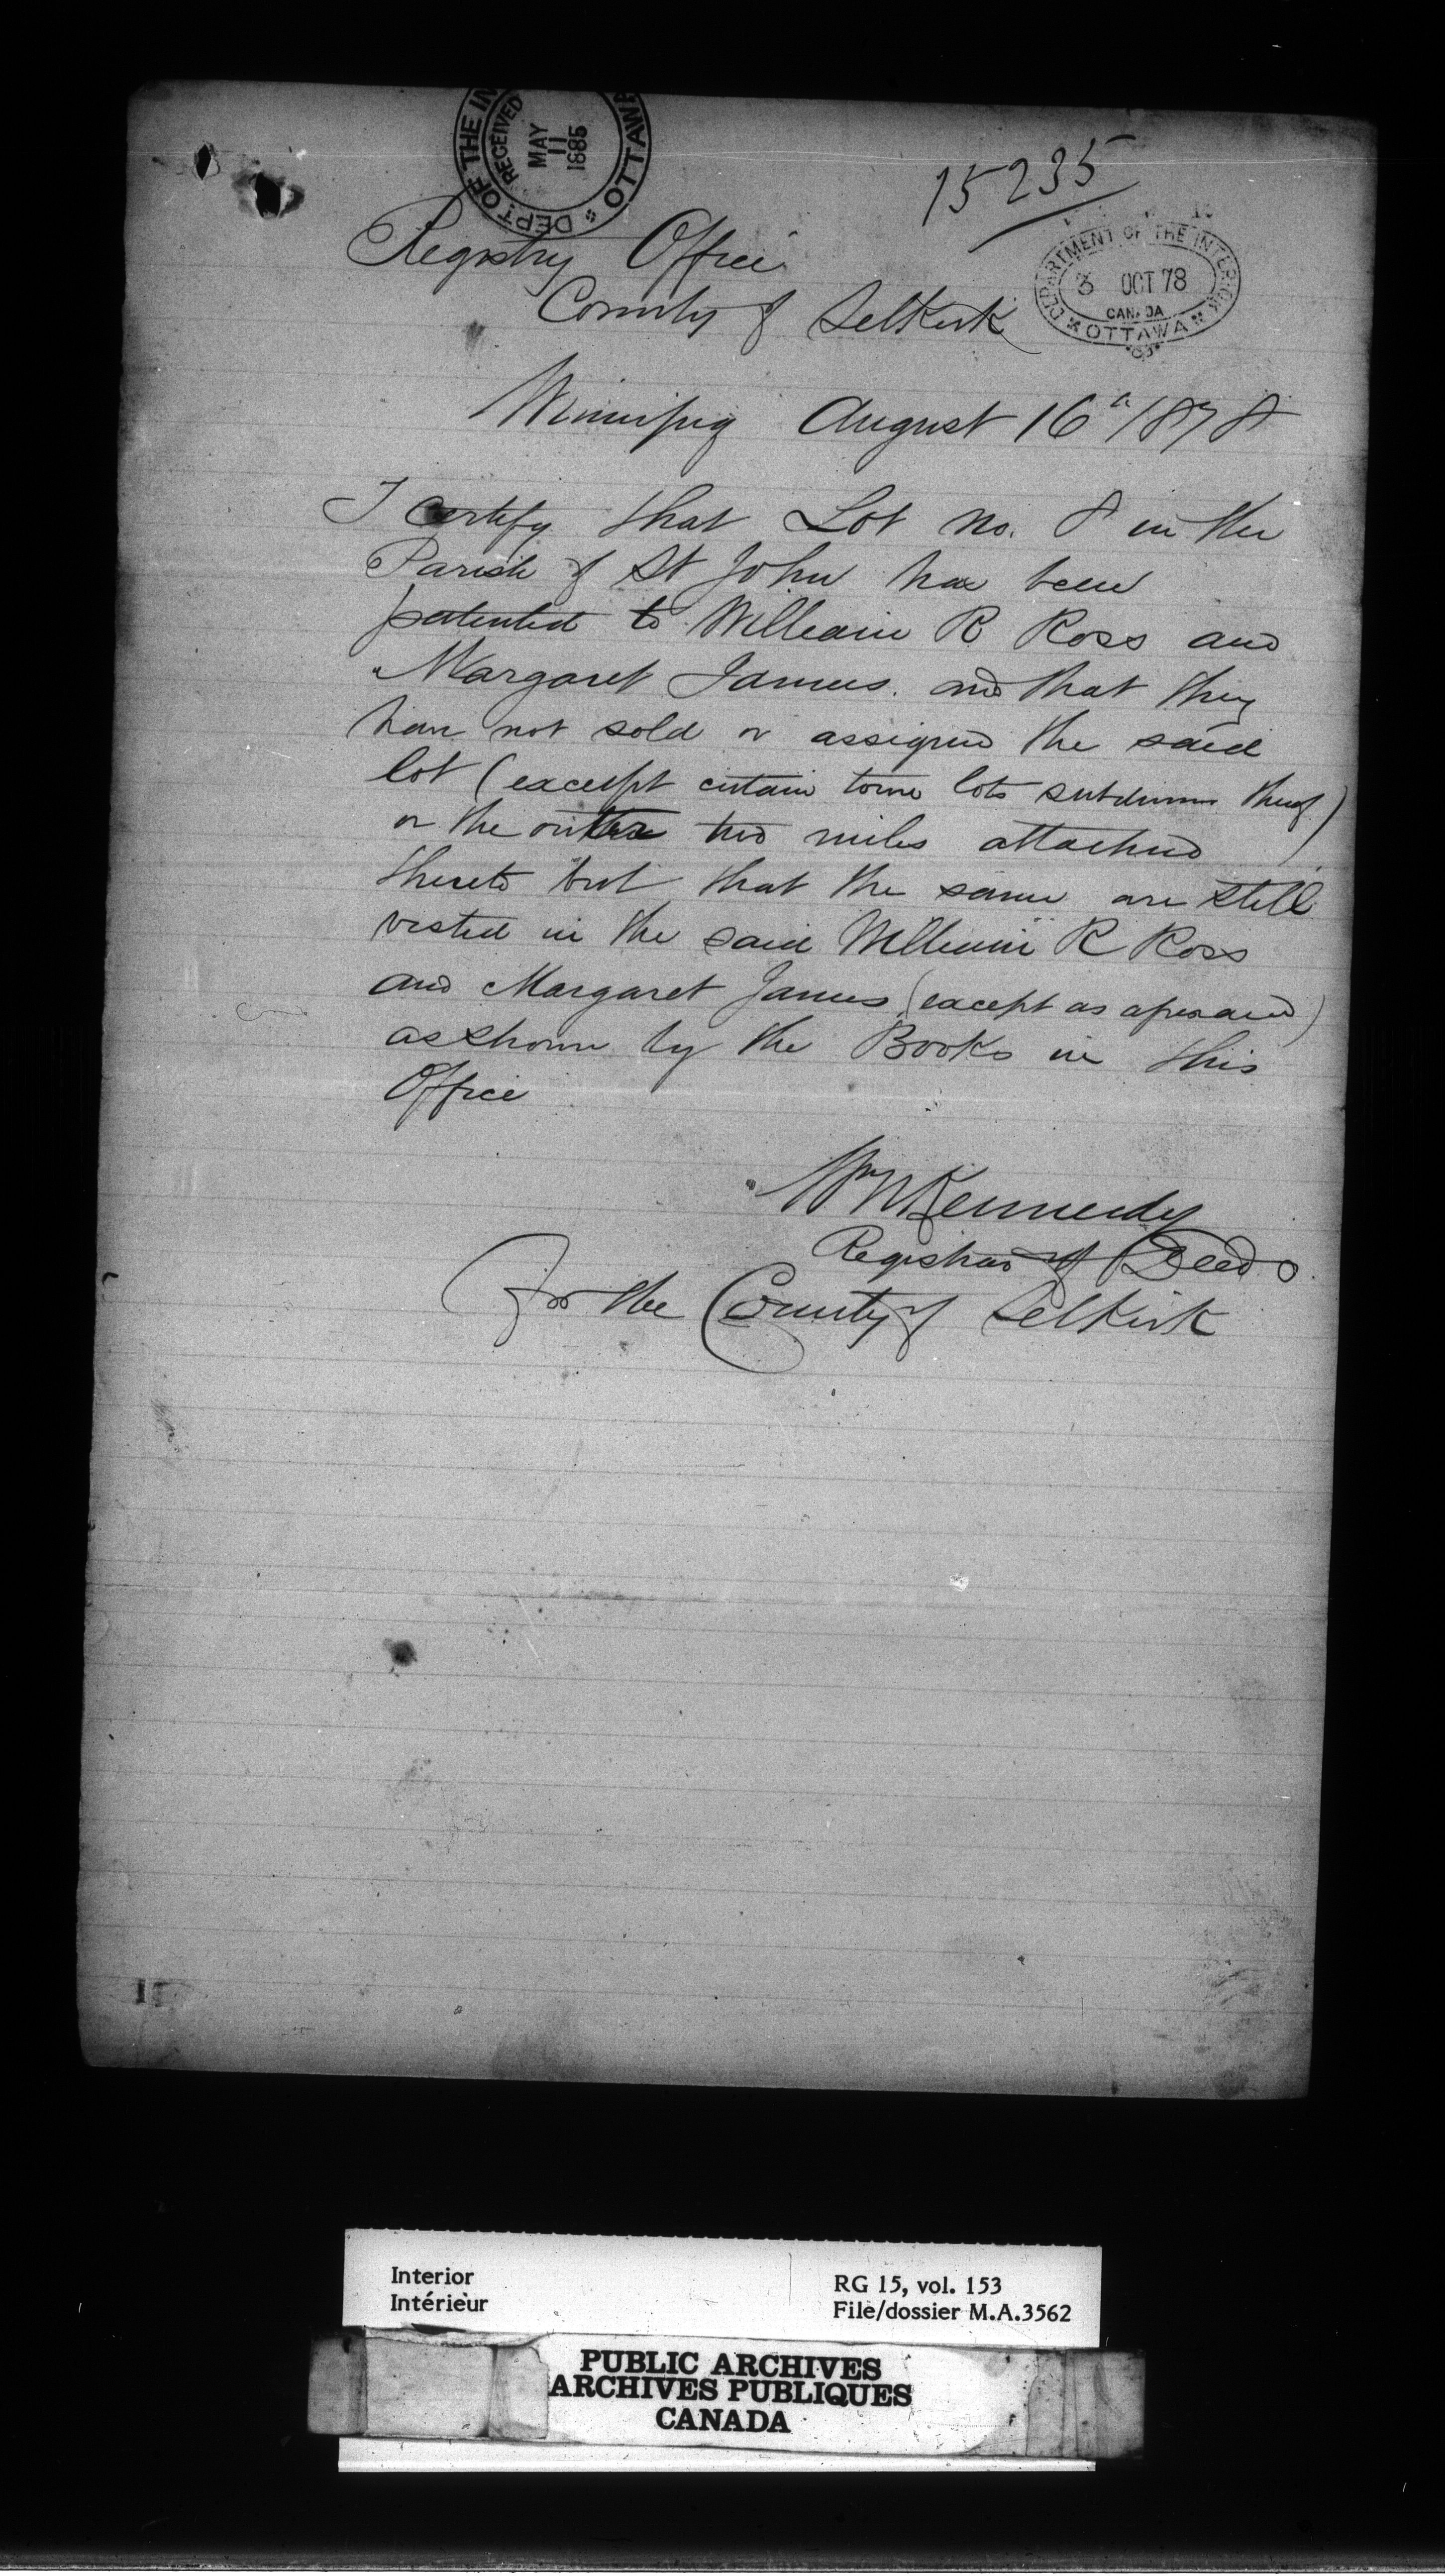 DEPT. OF THE IN
OTTAWA
RECEIVED
MAY
11
1885
15235
DEPARTMENT OF THE INTERIOR
3 OCT 78
CANADA
OTTAWA
Registry Office
County of Selkirk
Winnipeg August 16th 1878
I certify that Lot No. 8 in the
Parish of St John has been
patented to William R Ross and
Margaret James. and that they
have not sold or assigned the said
lot (except certain town lots subdivisions thereof)
or the outer two miles attached
thereto but that the same are still
vested in the said William R Ross
and Margaret James (except as aforesaid)
as shown by the Books in this
Office
Wm N Kennedy
Registrar of Deeds
For the County of Selkirk
Interior
Intérieur
RG 15, vol. 153
File/dossier M.A.3562
PUBLIC ARCHIVES
ARCHIVES PUBLIQUES
CANADA